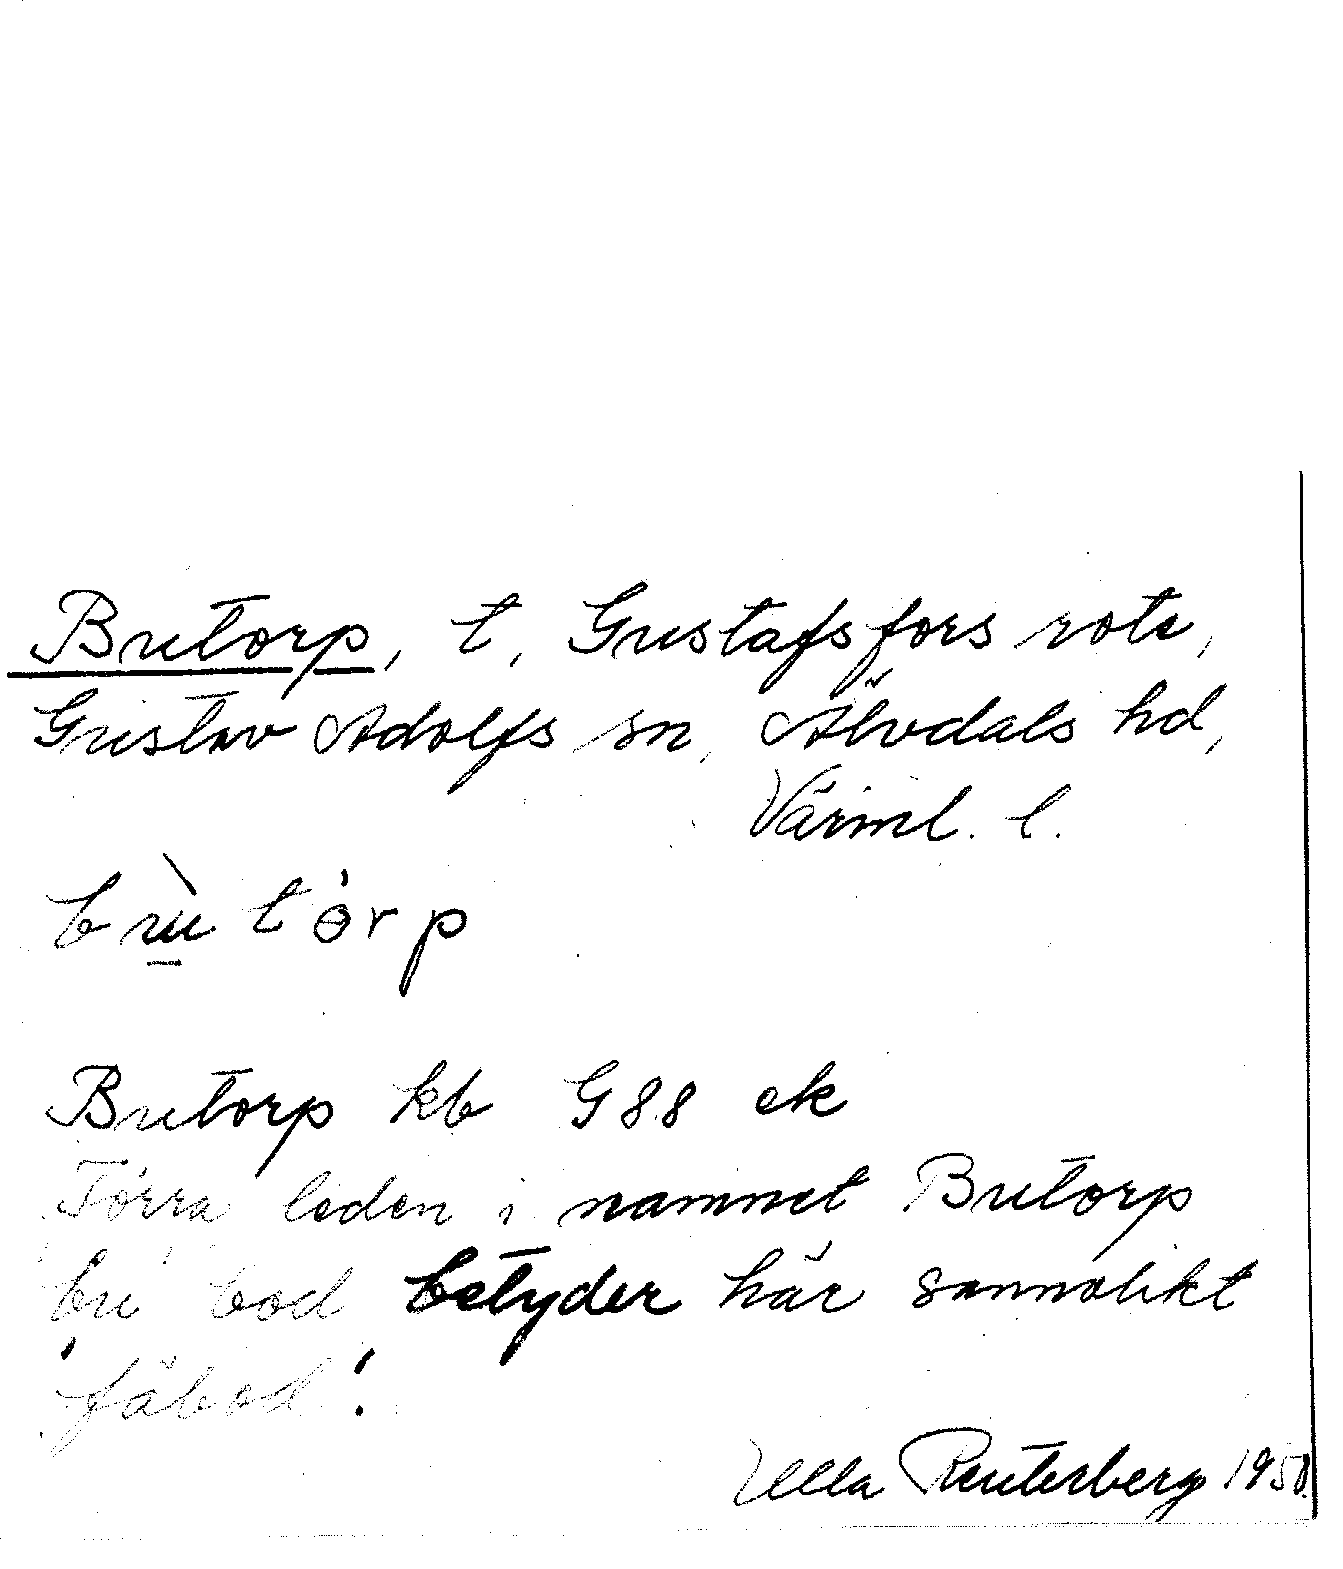 Butorp, t, Gustafsfors rote,
Gustav Adolfs sn, Älvdals hd,
Värml. l.
bù̱tȯrp
Butorp kb G88 ek
Förra leden i namnet Butorp
'bu' bod betyder här sannolikt
'fäbod'.
Ulla Reuterberg 1950.